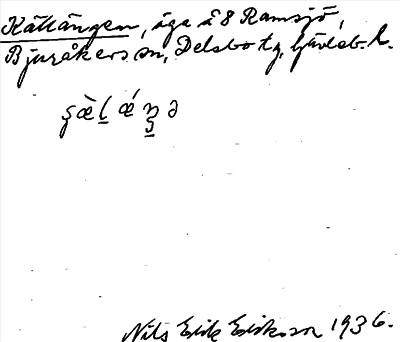 Källängen, äga å 8 Ramsjö,
Bjuråkers sn, Delsbo tg, Gävleb. l.
Nils Erik Eriksson 1936.